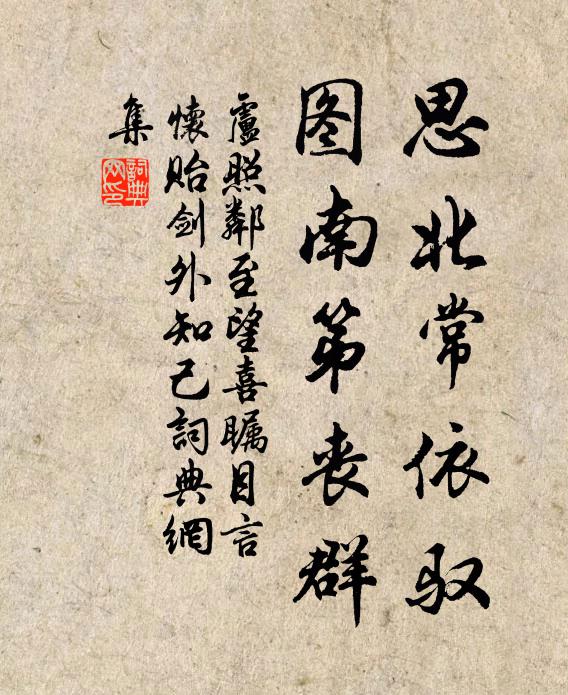 思北常依驭
图南第丧群
盧照鄰至望喜瞩目言
懷贻剑外知己詞典網
集
詞典网印